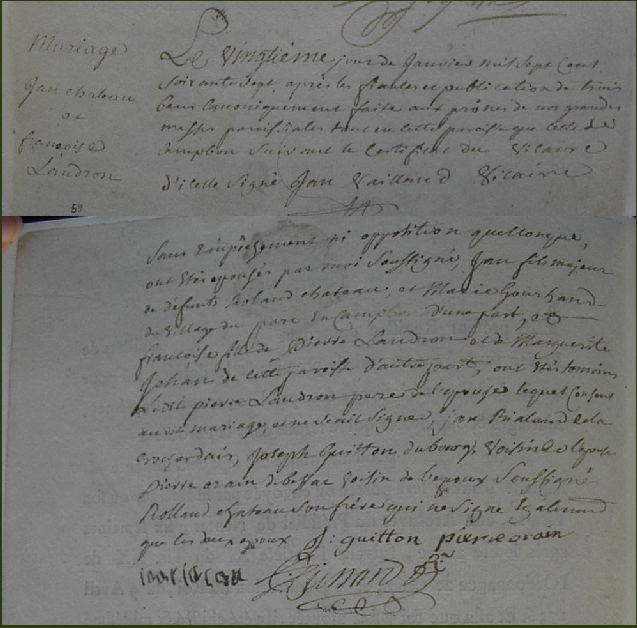 Mariage
Jan chateau
et
françoise
Landron
Le vingtième jour de Janvier mil sept cent
soixante sept, après les fiançailles et publication de trois
bans canoniquement faite aux prônes de nos grandes
messes paroissiales tant en cette paroisse que celle de
Campbon suivant le certificat du Vicaire
d'icelle signé Jan Vailland Vicaire
59
sans empêchement ni opposition quelconque,
ont étés épousés par moi Soussigné, Jan fils majeur
de défunts Roland chateau, et Marie Gourhand
du village du parc en Campbon d'une part, et
françoise fille de Pierre Landron et de Marguerite
Johan de cette paroisse d'autre part, ont étés temoins
pierre Landron pere de l'epouse lequel consent
au dit mariage, et ne sait signer, jan Rialand de la
Joseph Guitton du bourg, voisin de l'epouse
pierre orain de voisin de l'epoux Soussigné
Rolland chateau son frère qui ne signe egalement
que les deux epoux J: guitton pierre orain